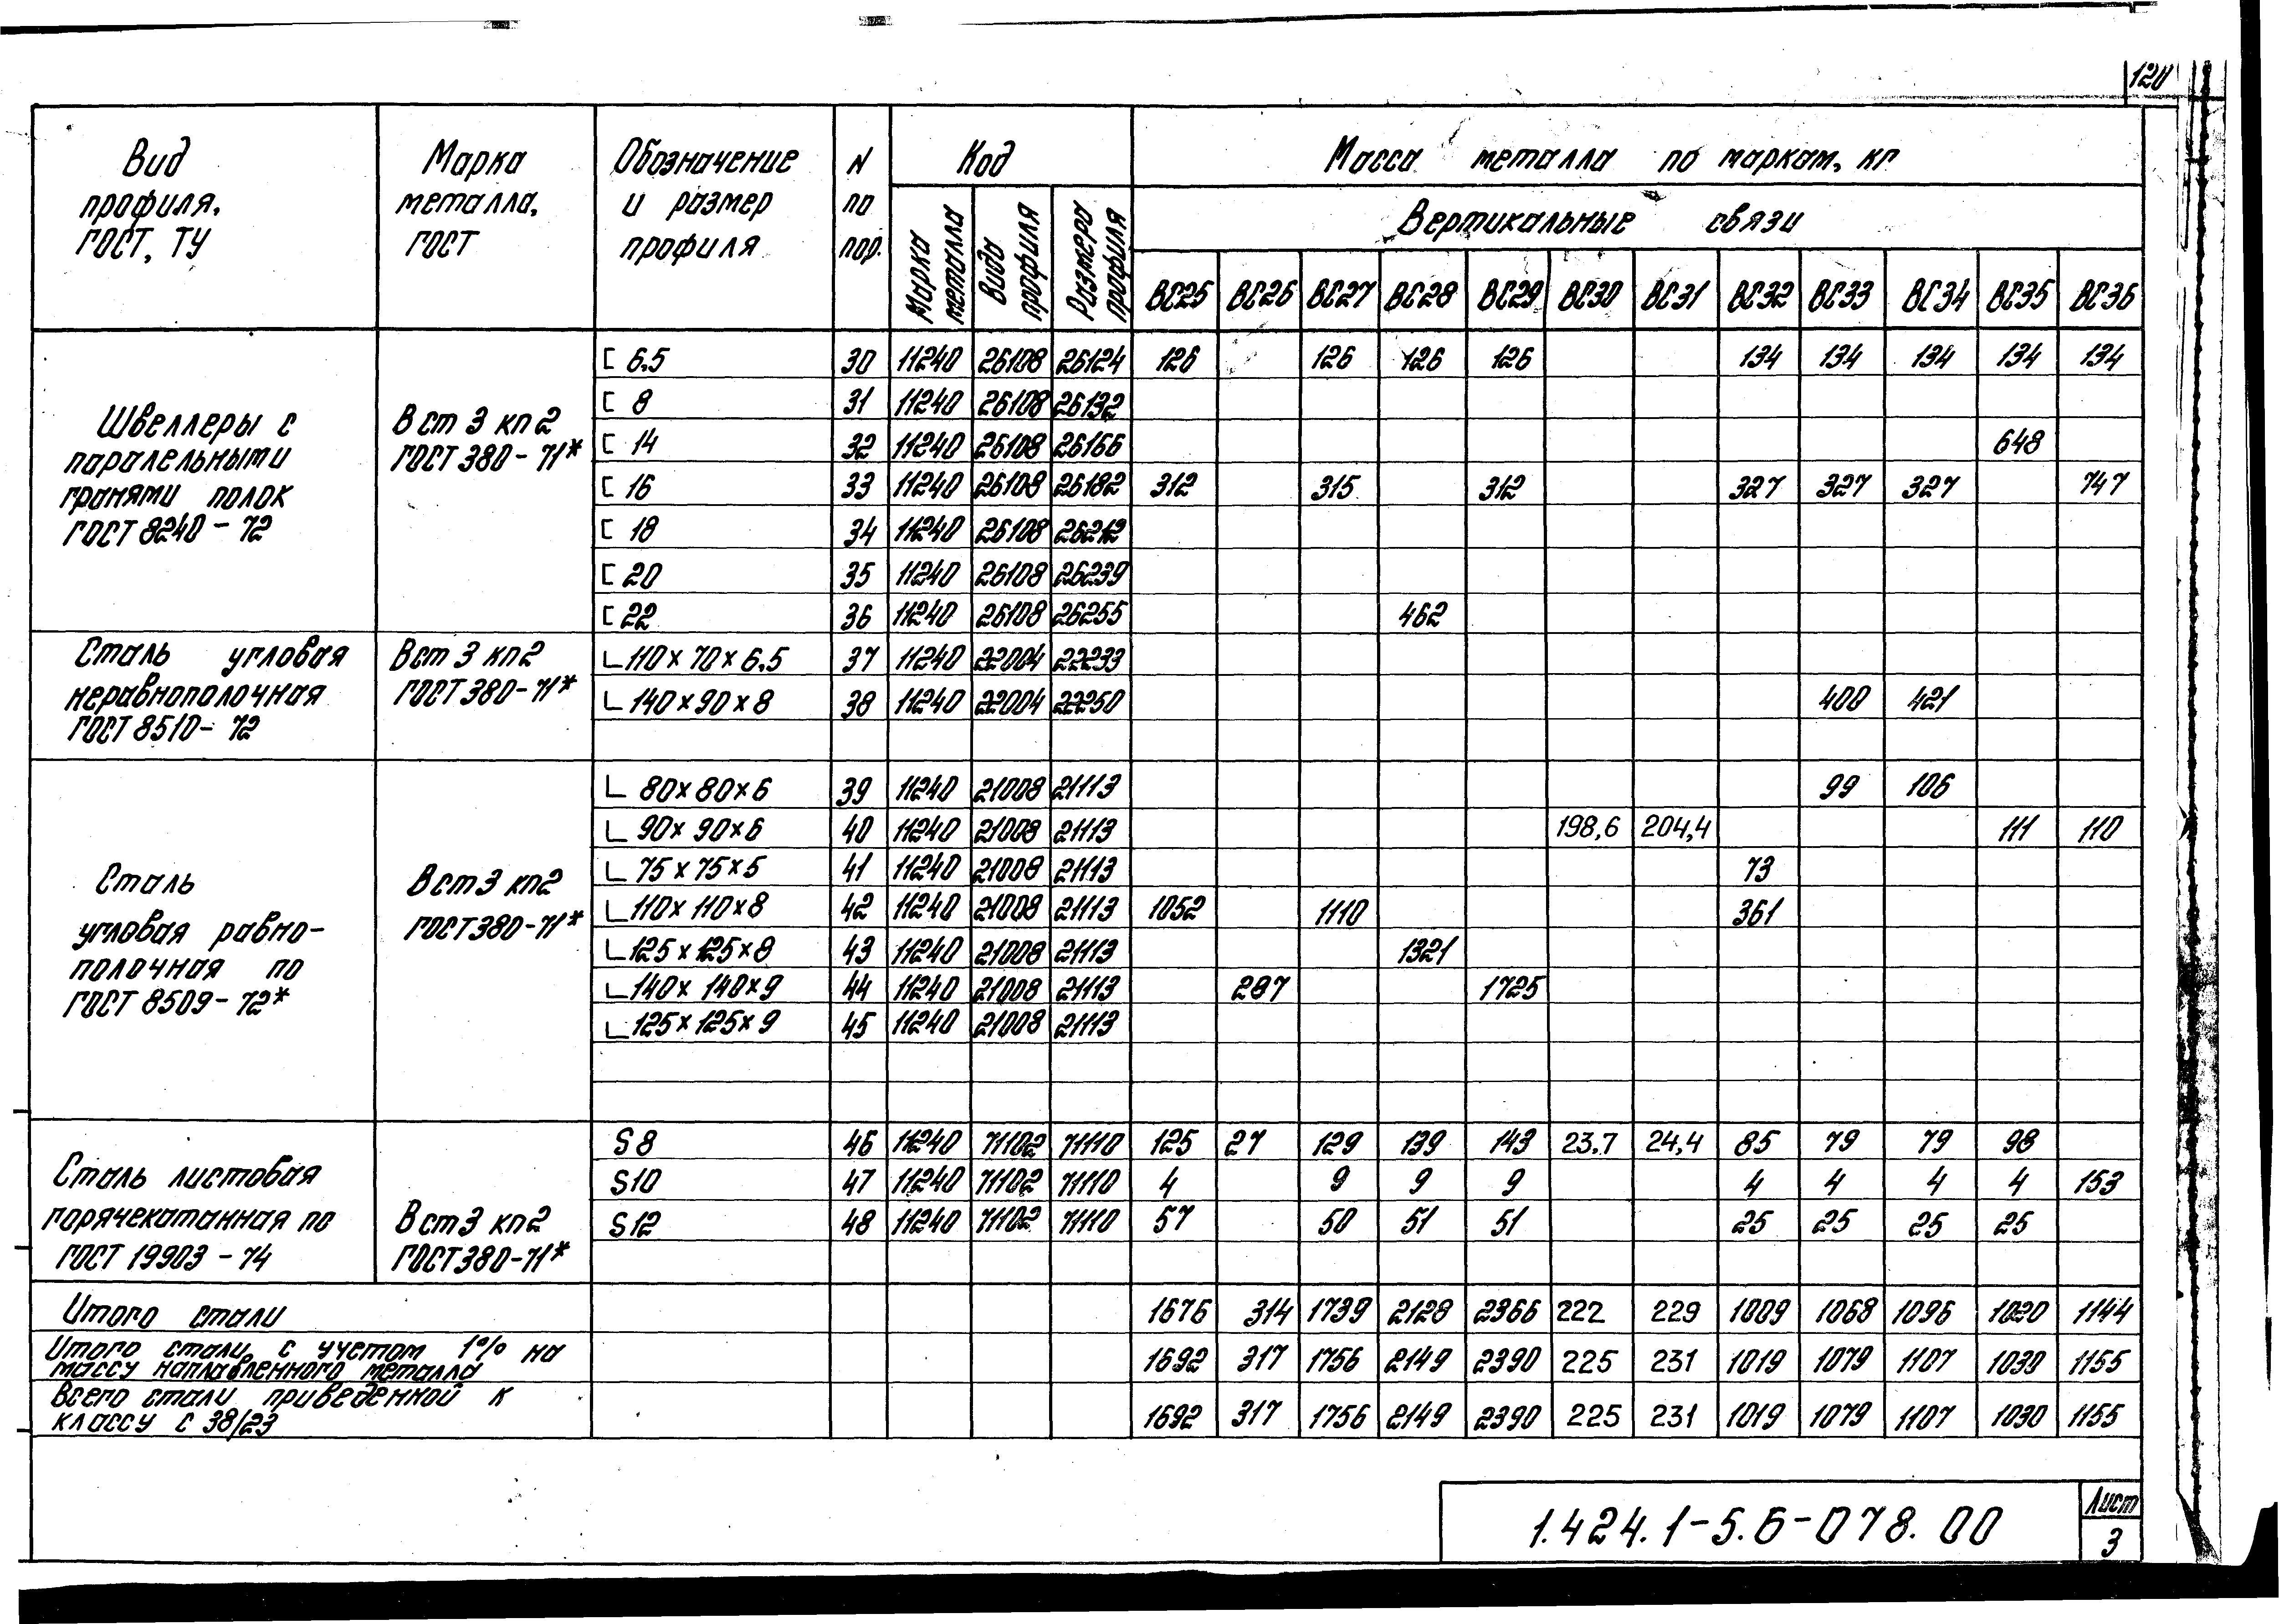 120
Вид профиля, ГОСТ, ТУ | Марка металла, ГОСТ | Обозначение и размер профиля | N по пор. | Код | Масса металла по маркам, кг
Марка металла | Вида профиля | Размера профиля | Вертикальные связи
ВС25 | ВС26 | ВС27 | ВС28 | ВС29 | ВС30 | ВС31 | ВС32 | ВС33 | ВС34 | ВС35 | ВС36
Швеллеры с
паралельными
гранями полок
ГОСТ 8240-72
В ст 3 кп 2
ГОСТ 380-71*
[ 6.5 | 30 | 11240 | 26108 | 26124 | 126 | | 126 | 126 | 126 | | | 134 | 134 | 134 | 134 | 134
[ 8 | 31 | 11240 | 26108 | 26132
[ 14 | 32 | 11240 | 26108 | 26166 | 648
[ 16 | 33 | 11240 | 26108 | 26182 | 312 | | 315 | | 312 | | | 327 | 327 | 327 | | 747
[ 18 | 34 | 11240 | 26108 | 26212
[ 20 | 35 | 11240 | 26108 | 26239
[ 22 | 36 | 11240 | 26108 | 26255 | 462
Сталь угловая
неравнополочная
ГОСТ 8510-72
Вст 3 кп2
ГОСТ 380-71*
∟110×70×6.5 | 37 | 11240 | 22004 | 22233
∟140×90×8 | 38 | 11240 | 22004 | 22250 | 400 | 421
Сталь
угловая равно-
полочная по
ГОСТ 8509-72*
Вст3 кп2
ГОСТ380-71*
∟ 80×80×6 | 39 | 11240 | 21008 | 21113 | 99 | 106
∟ 90×90×6 | 40 | 11240 | 21008 | 21113 | 198,6 | 204,4 | 111 | 110
∟ 75×75×5 | 41 | 11240 | 21008 | 21113 | 73
∟110×110×8 | 42 | 11240 | 21008 | 21113 | 1052 | 1110 | 361
∟125×125×8 | 43 | 11240 | 21008 | 21113 | 1321
∟140×140×9 | 44 | 11240 | 21008 | 21113 | 287 | 1725
∟125×125×9 | 45 | 11240 | 21008 | 21113
Сталь листовая
горячекатанная по
ГОСТ 19903-74
Вст3 кп2
ГОСТ380-71*
S8 | 46 | 11240 | 71102 | 71110 | 125 | 27 | 129 | 139 | 143 | 23.7 | 24,4 | 85 | 79 | 79 | 98
S10 | 47 | 11240 | 71102 | 71110 | 4 | | 9 | 9 | 9 | | | 4 | 4 | 4 | 4 | 153
S12 | 48 | 11240 | 71102 | 71110 | 57 | | 50 | 51 | 51 | | | 25 | 25 | 25 | 25
Итого стали | 1676 | 314 | 1739 | 2128 | 2366 | 222 | 229 | 1009 | 1068 | 1096 | 1020 | 1144
Итого стали с учетом 1% на
массу наплавленного металла | 1692 | 317 | 1756 | 2149 | 2390 | 225 | 231 | 1019 | 1079 | 1107 | 1030 | 1155
Всего стали приведенной к
классу С 38/23 | 1692 | 317 | 1756 | 2149 | 2390 | 225 | 231 | 1019 | 1079 | 1107 | 1030 | 1155
1.424.1-5.6-078.00
Лист
3